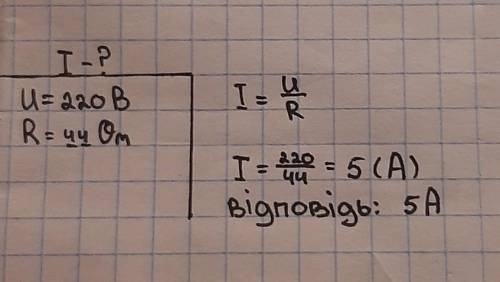 I - ?
U = 220 В
R = 44 Ом
I = U/R
I = 220/44 = 5 (А)
Відповідь: 5А